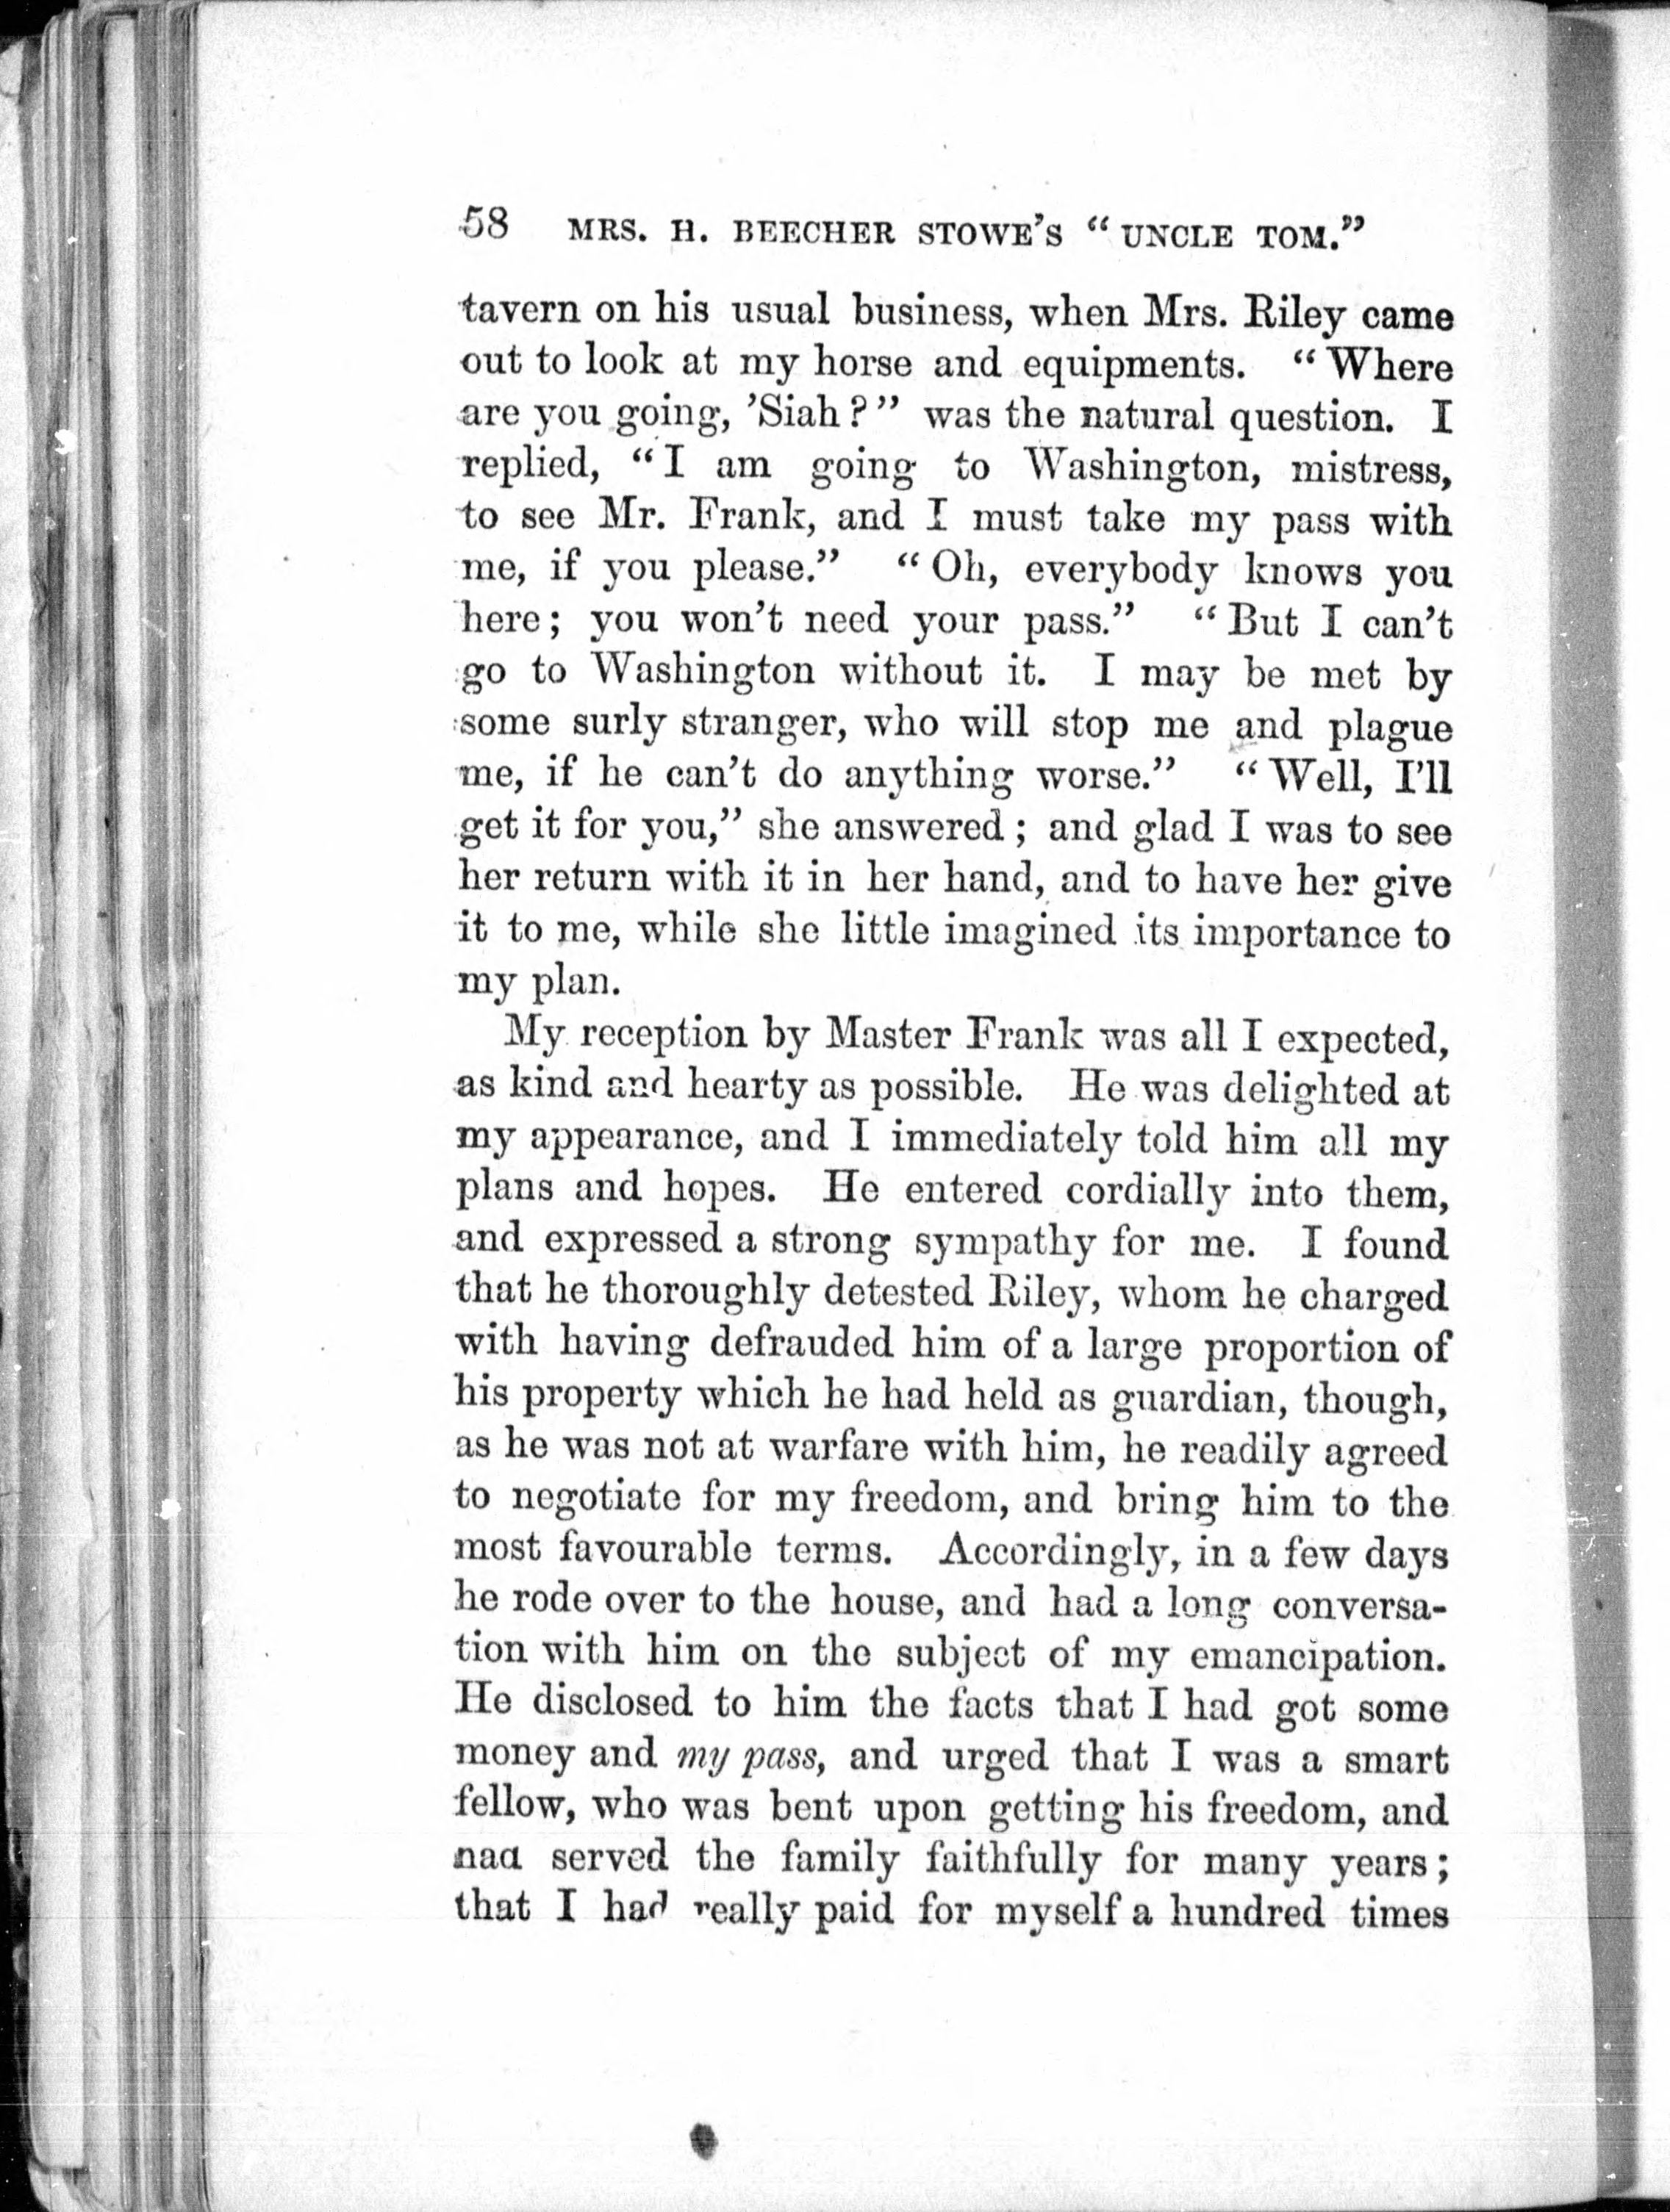 58 MRS. H. BEECHER STOWE'S “UNCLE TOM.”
tavern on his usual business, when Mrs. Riley came
out to look at my horse and equipments. “Where
are you going, ’Siah?” was the natural question. I
replied, “I am going to Washington, mistress,
to see Mr. Frank, and I must take my pass with
me, if you please.” “Oh, everybody knows you
here; you won’t need your pass.” “But I can’t
go to Washington without it. I may be met by
some surly stranger, who will stop me and plague
me, if he can’t do anything worse.” “Well, I’ll
get it for you,” she answered; and glad I was to see
her return with it in her hand, and to have her give
it to me, while she little imagined its importance to
my plan.
My reception by Master Frank was all I expected,
as kind and hearty as possible. He was delighted at
my appearance, and I immediately told him all my
plans and hopes. He entered cordially into them,
and expressed a strong sympathy for me. I found
that he thoroughly detested Riley, whom he charged
with having defrauded him of a large proportion of
his property which he had held as guardian, though,
as he was not at warfare with him, he readily agreed
to negotiate for my freedom, and bring him to the
most favourable terms. Accordingly, in a few days
he rode over to the house, and had a long conversa-
tion with him on the subject of my emancipation.
He disclosed to him the facts that I had got some
money and my pass, and urged that I was a smart
fellow, who was bent upon getting his freedom, and
had served the family faithfully for many years;
that I had really paid for myself a hundred times